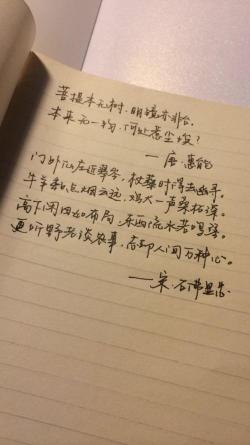 菩提本无树,明镜亦非台.
本来无一物,何处惹尘埃?
—唐·惠能
门外仙庄近翠岑,杖藜时得去幽寻.
牛羊数点烟云远,鸡犬一声桑柘深.
高下闲田如布局,东西流水若鸣琴.
更听野老谈农事,忘却人间万种心.
—宋·石佛显忠